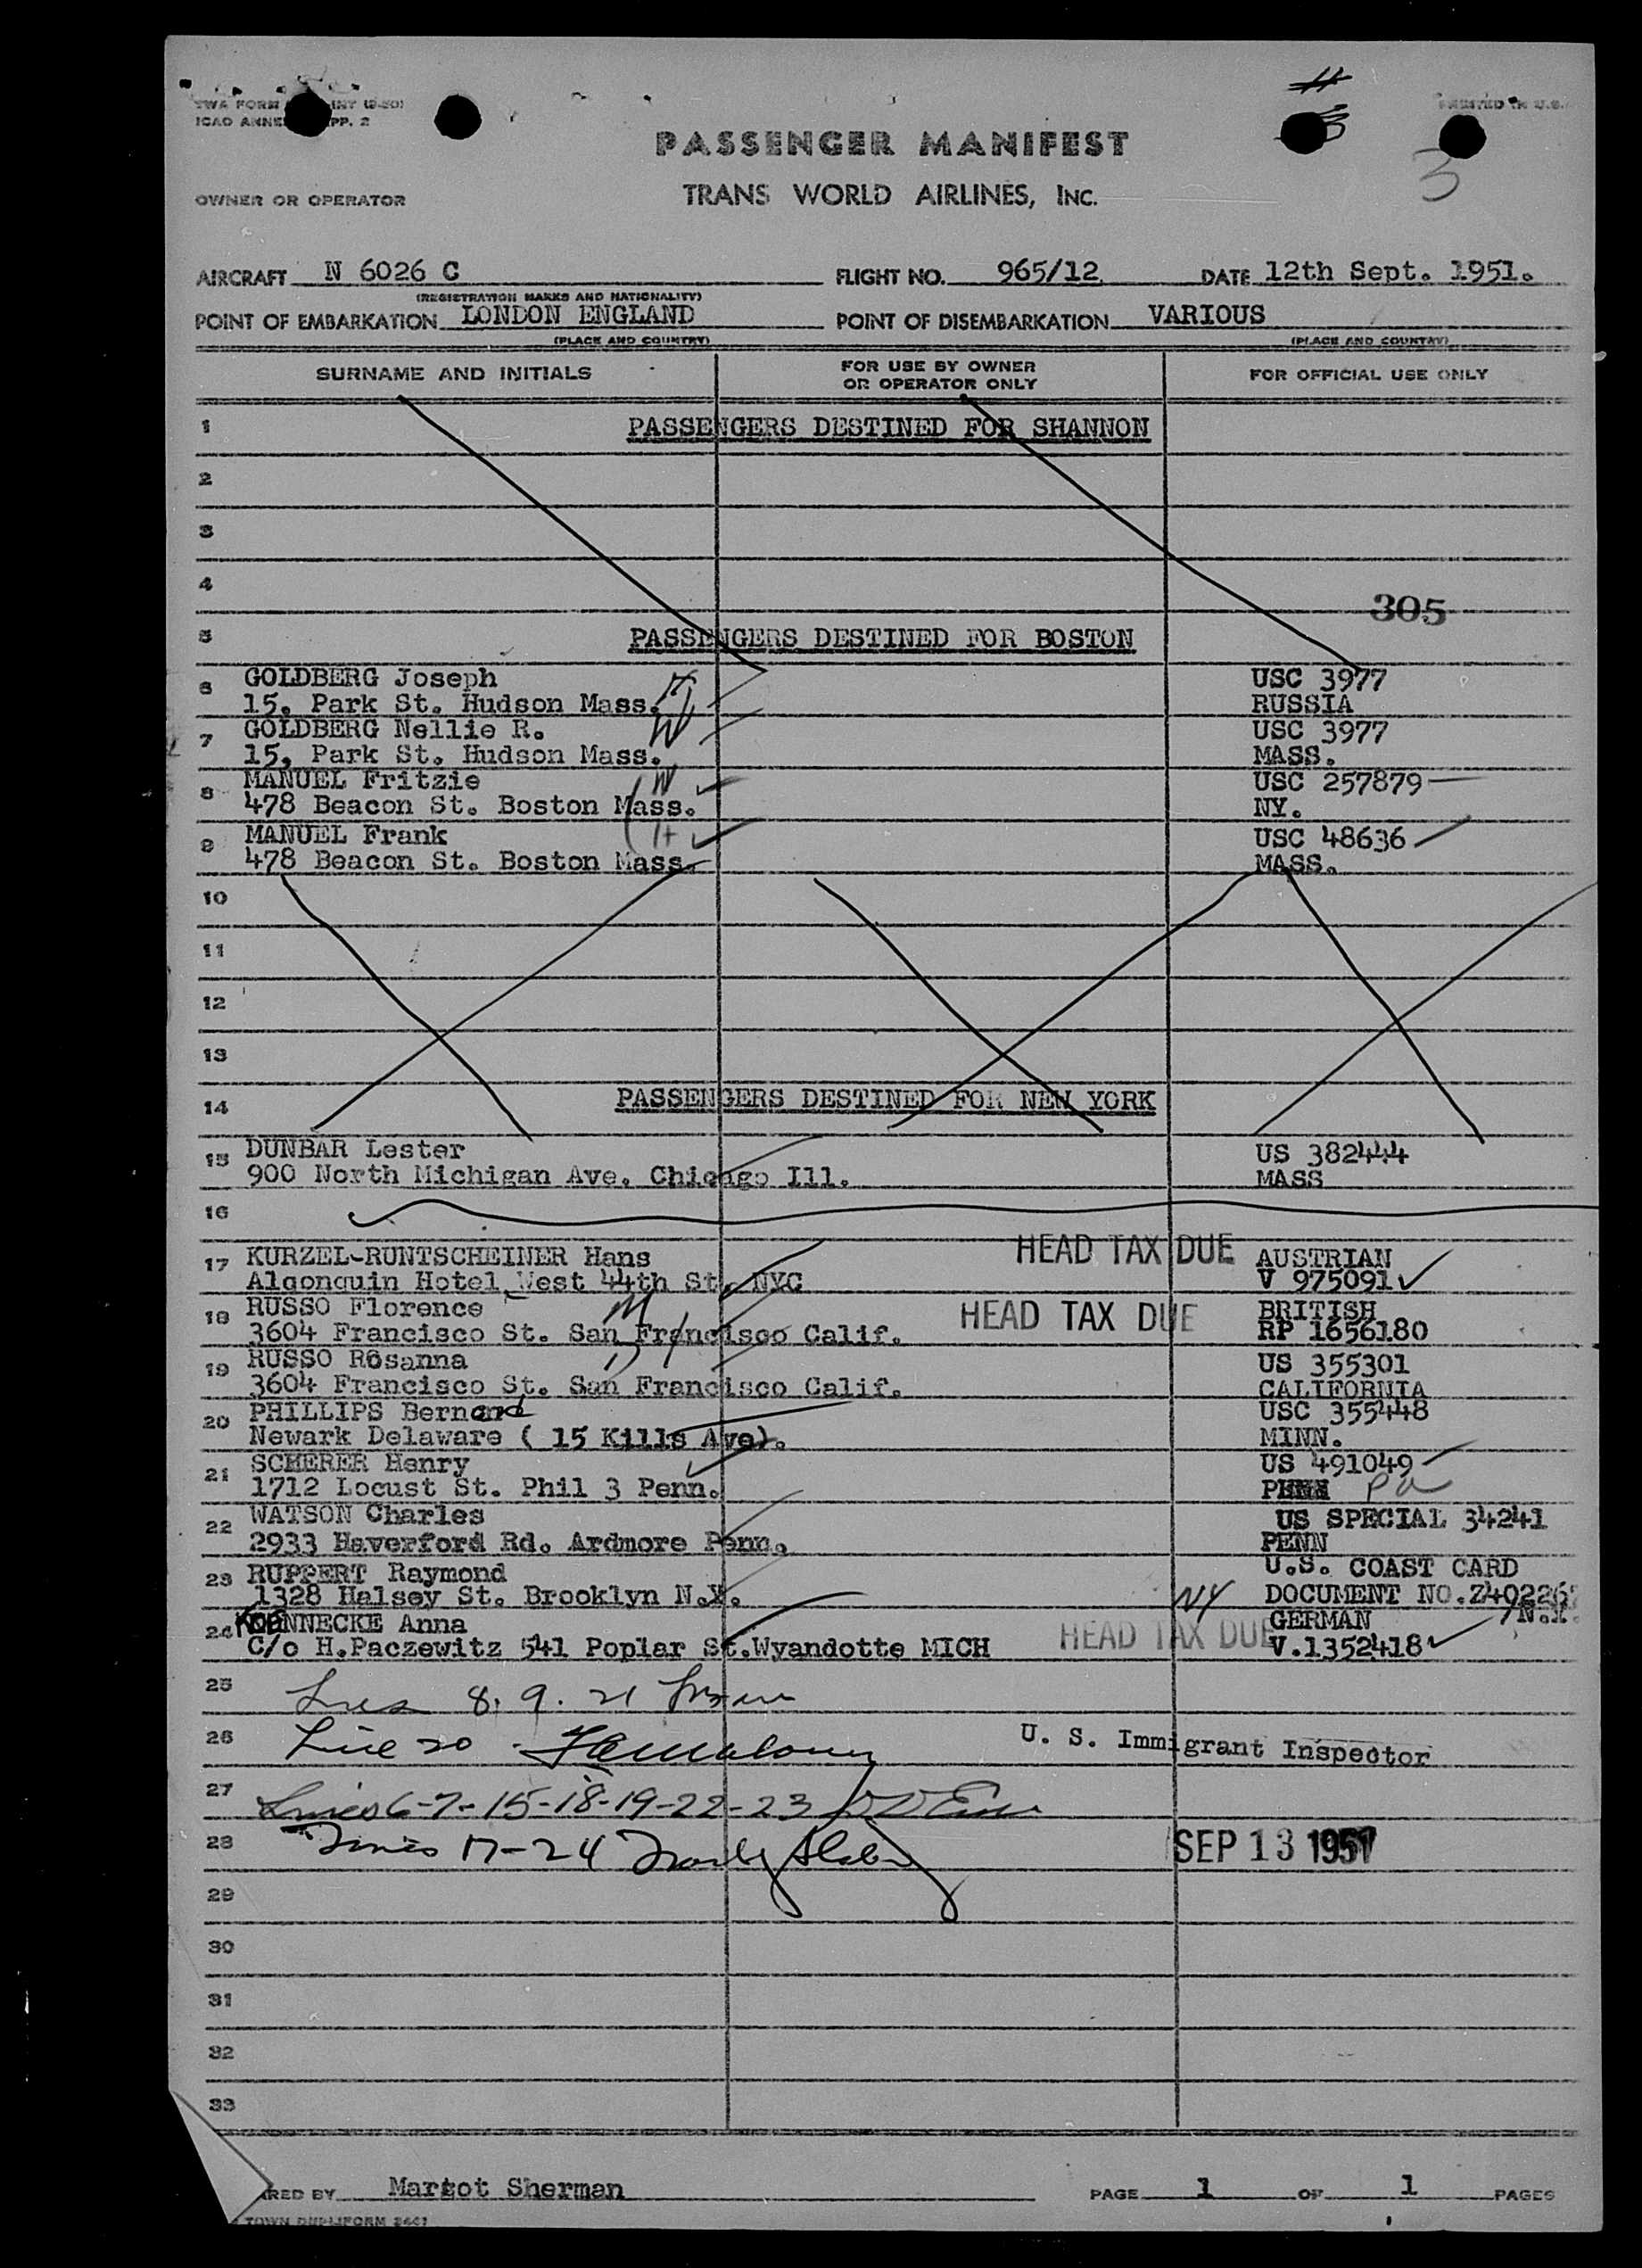 TWA FORM INT (9-50)
ICAO ANNE PP. 2
PRINTED IN U.S.
3
PASSENGER MANIFEST
OWNER OR OPERATOR
TRANS WORLD AIRLINES, INC.
AIRCRAFT N 6026 C FLIGHT NO. 965/12 DATE 12th Sept. 1951.
(REGISTRATION MARKS AND NATIONALITY)
POINT OF EMBARKATION LONDON ENGLAND POINT OF DISEMBARKATION VARIOUS
(PLACE AND COUNTRY) (PLACE AND COUNTRY)
SURNAME AND INITIALS FOR USE BY OWNER OR OPERATOR ONLY FOR OFFICIAL USE ONLY
1 PASSENGERS DESTINED FOR SHANNON
2
3
4
305
5 PASSENGERS DESTINED FOR BOSTON
6 GOLDBERG Joseph H USC 3977
15, Park St. Hudson Mass. RUSSIA
7 GOLDBERG Nellie R. W USC 3977
15, Park St. Hudson Mass. MASS.
8 MANUEL Fritzie W USC 257879
478 Beacon St. Boston Mass. NY.
9 MANUEL Frank H USC 48636
478 Beacon St. Boston Mass. MASS.
10
11
12
13
14 PASSENGERS DESTINED FOR NEW YORK
15 DUNBAR Lester US 382444
900 North Michigan Ave. Chicago Ill. MASS
16
17 KURZEL-RUNTSCHEINER Hans HEAD TAX DUE AUSTRIAN
Algonquin Hotel West 44th St. NYC V 975091
18 RUSSO Florence M HEAD TAX DUE BRITISH
3604 Francisco St. San Francisco Calif. RP 1656180
19 RUSSO Rosanna D US 355301
3604 Francisco St. San Francisco Calif. CALIFORNIA
20 PHILLIPS Bernard USC 355448
Newark Delaware ( 15 Kills Ave). MINN.
21 SCHERER Henry US 491049
1712 Locust St. Phil 3 Penn. PENN Pa
22 WATSON Charles US SPECIAL 34241
2933 Haverford Rd. Ardmore Penn. PENN
23 RUPPERT Raymond U.S. COAST CARD
1328 Halsey St. Brooklyn N.Y. NY DOCUMENT NO.Z40226
N.Y.
24 KOENNECKE Anna HEAD TAX DUE GERMAN
C/o H.Paczewitz 541 Poplar St.Wyandotte MICH V.1352418
25 Lines 8. 9. 21
26 Line 20 U. S. Immigrant Inspector
27 Lines 6-7-15-18-19-22-23
28 Lines 17-24 SEP 13 1951
29
30
31
32
33
ARED BY Margot Sherman PAGE 1 OF 1 PAGES
TOWN DUPLIFORM